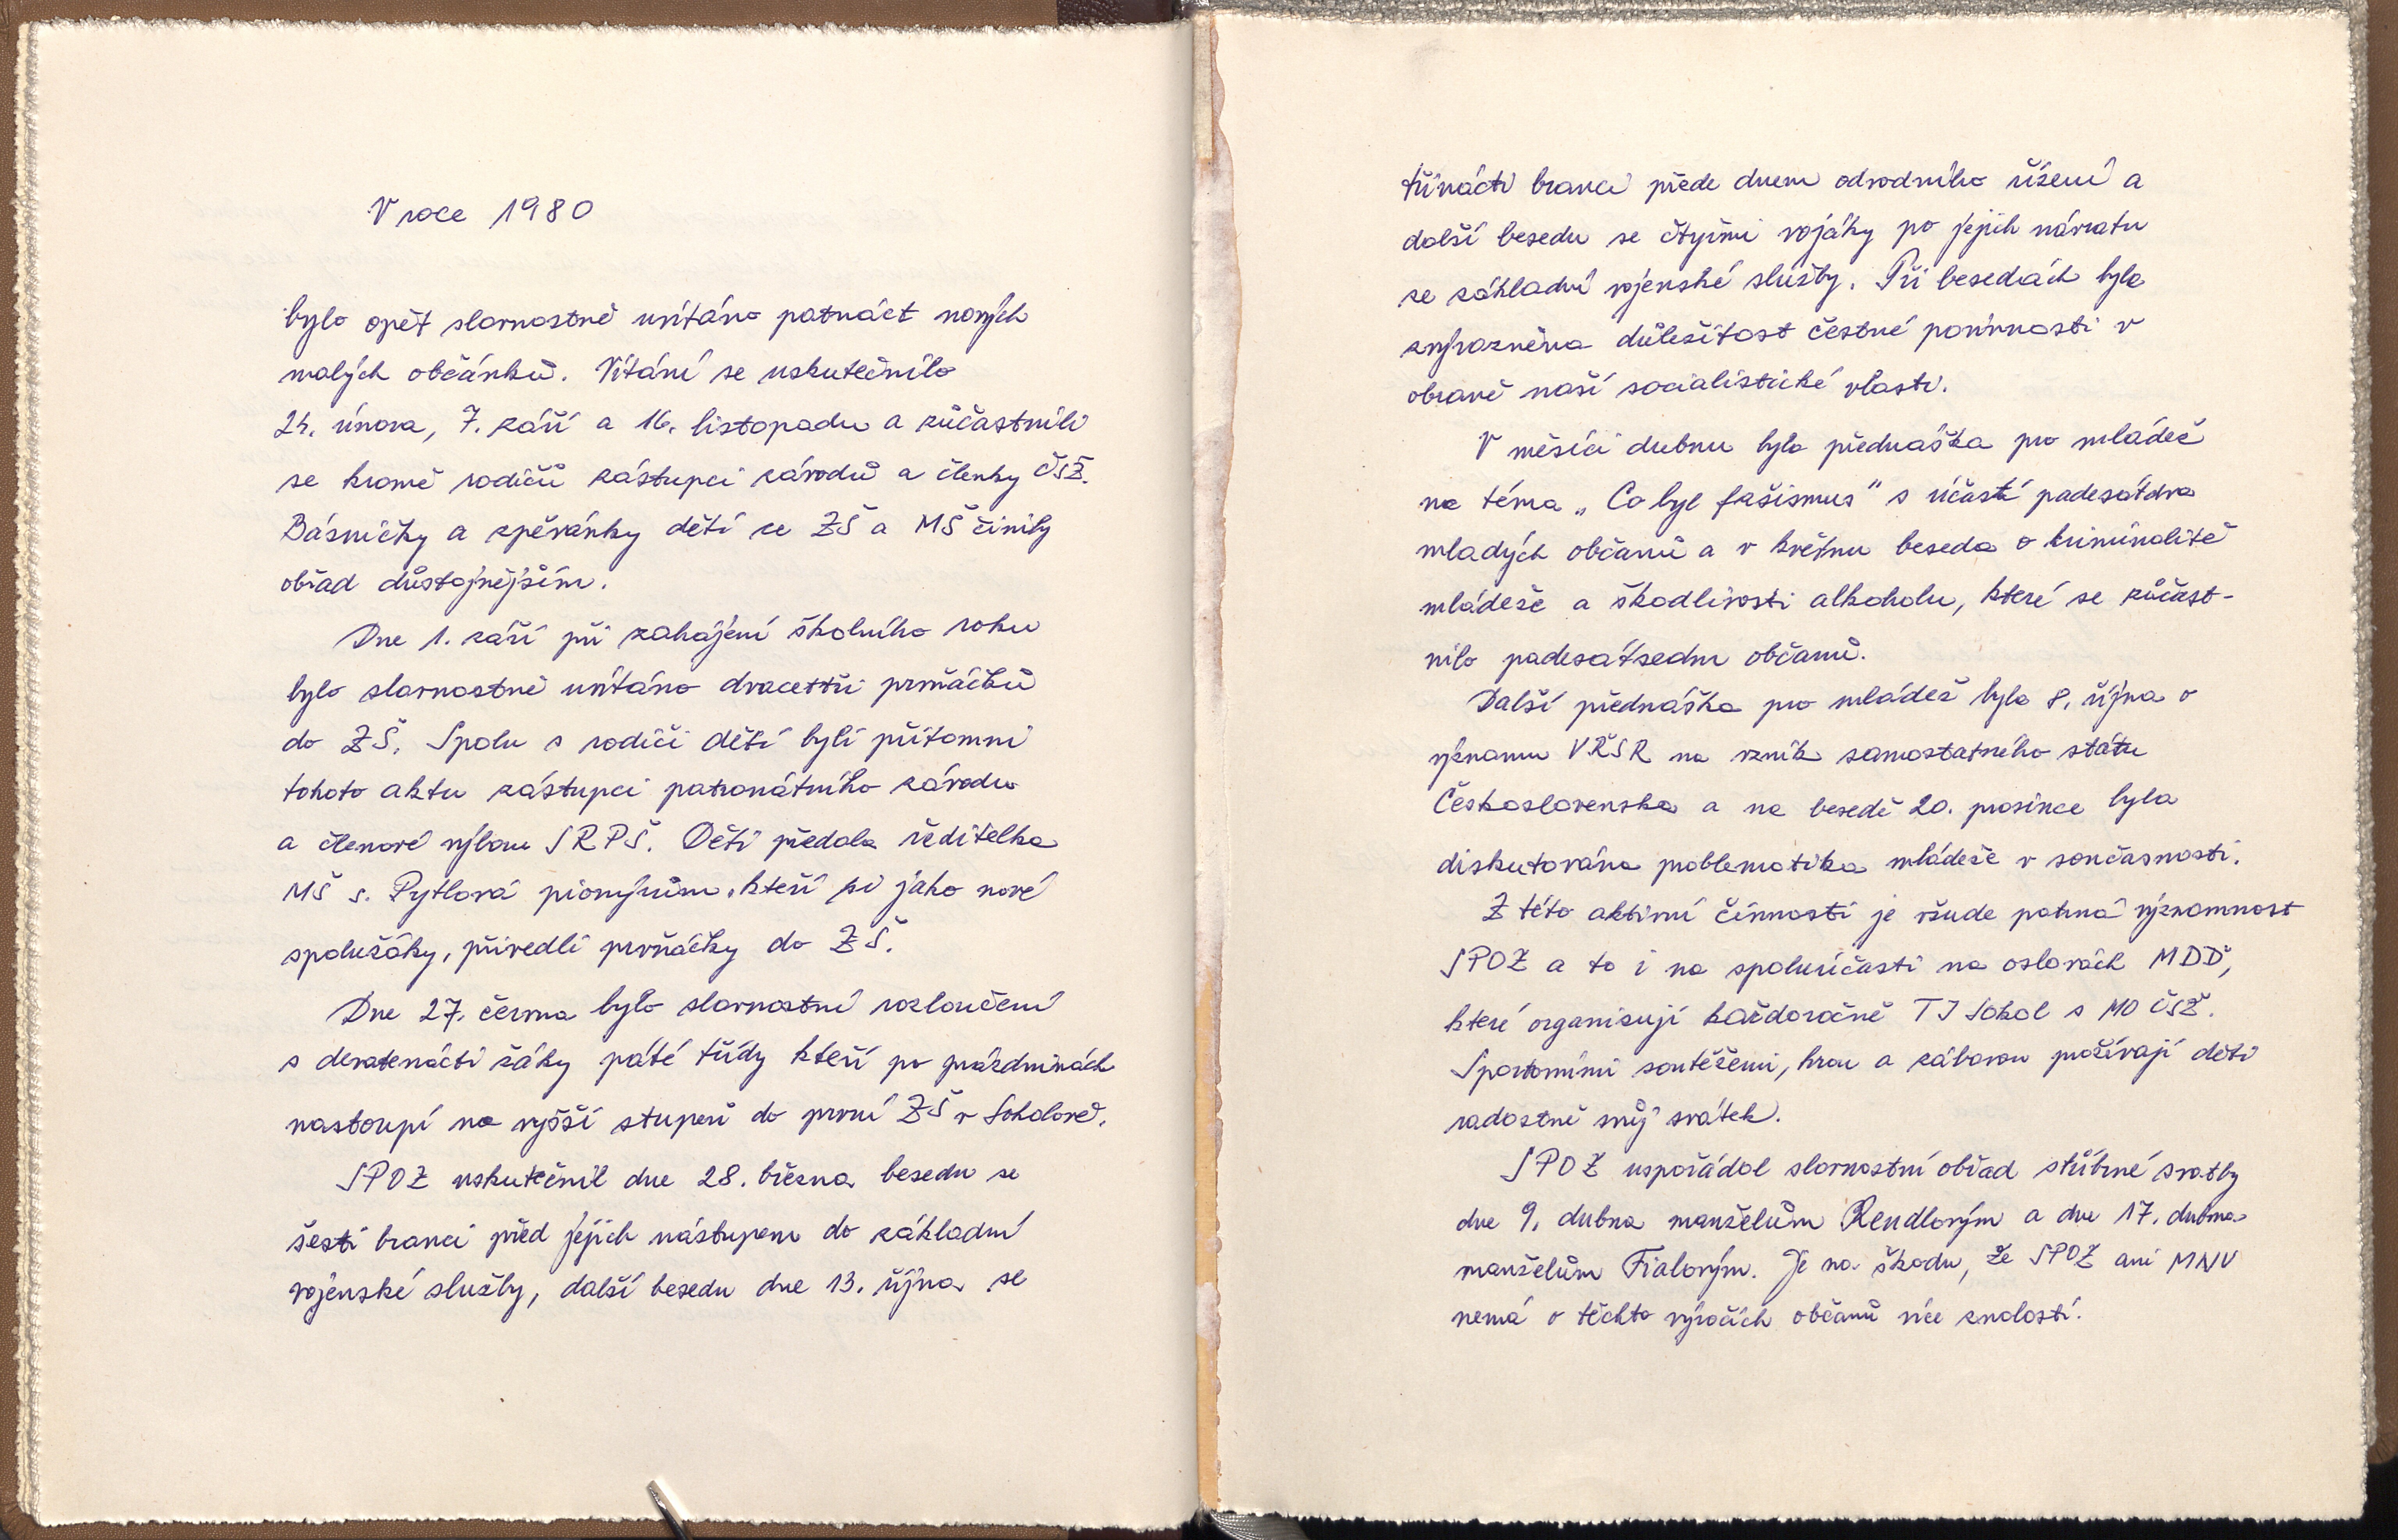 V roce 1980
bylo opět slavnostně uvítáno patnáct nových
malých občánků. Vítání se uskutečnilo
24. února, 7. září a 16. listopadu a zúčastnili
se kromě rodičů zástupci závodů a členky ČSŽ.
Básničky a zpěvánky dětí ze ZŠ a MŠ činily
obřad důstojnějším.
Dne 1. září při zahájení školního roku
bylo slavnostně uvítáno dvacettři prvňáčků
do ZŠ. Spolu s rodiči dětí byli přítomni
tohoto aktu zástupci patronátního závodu
a členové výboru SRPŠ. Děti předala ředitelka
MŠ s. Pytlová pionýrům, kteří si jako nové
spolužáky, přivedli prvňáčky do ZŠ.
Dne 27. června bylo slavnostní rozloučení
s devatenácti žáky páté třídy kteří po prázdninách
nastoupí na vyšší stupeň do první ZŠ v Sokolově.
SPOZ uskutečnil dne 28. března besedu se
šesti branci před jejich nástupem do základní
vojenské služby, další besedu dne 13. října se
třinácti branci přede dnem odvodního řízení a
další besedu se čtyřmi vojáky po jejich návratu
ze základní vojenské služby. Při besedách byla
zvýrazněna důležitost čestné povinnosti v
obraně naší socialistické vlasti.
V měsíci dubnu byla přednáška pro mládež
na téma „Co byl fašismus" s účastí padesátdva
mladých občanů a v květnu beseda o kriminalitě
mládeže a škodlivosti alkoholu, které se zúčast-
nilo padesátsedm občanů.
Další přednáška pro mládež byla 8. října o
významu VŘSR na vznik samostatného státu
Československa a na besedě 20. prosince byla
diskutována problematika mládeže v současnosti.
Z této aktivní činnosti je všude patrná významnost
SPOZ a to i na spoluúčasti na oslavách MDD,
které organisují každoročně TJ Sokol s MO ČSŽ.
Sportovními soutěžemi, hrou a zábavou prožívají děti
radostně svůj svátek.
SPOZ uspořádal slavnostní obřad stříbrné svatby
dne 9. dubna manželům Rendlovým a dne 17. dubna
manželům Fialovým. Je na škodu, že SPOZ ani MNV
nemá o těchto výročích občanů více znalostí.